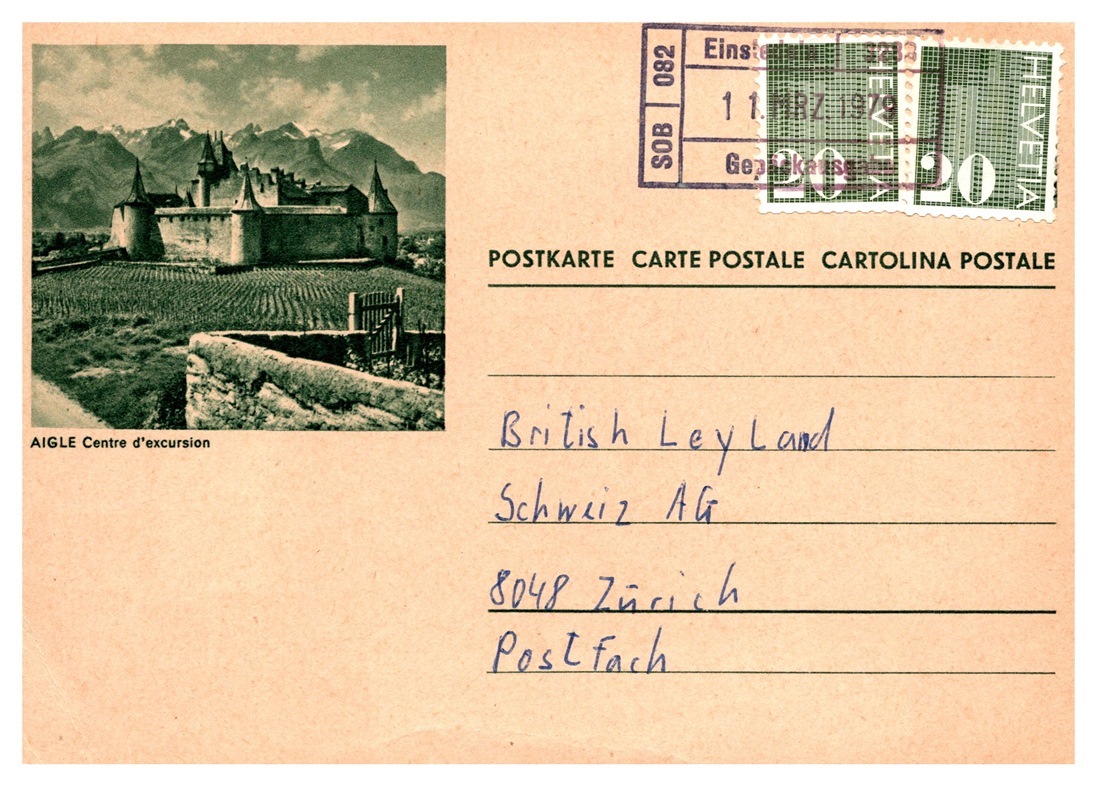 SOB 082
Einsiedeln
11. MRZ 1979
Gepäckausgabe
HELVETIA 20
HELVETIA 20
POSTKARTE CARTE POSTALE CARTOLINA POSTALE
AIGLE Centre d'excursion
British Leyland
Schweiz AG
8048 Zürich
Postfach